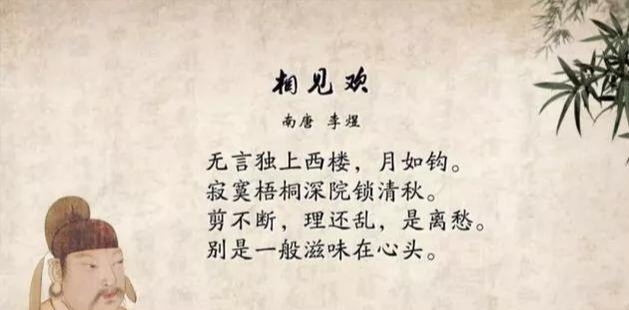 相见欢
南唐 李煜
无言独上西楼，月如钩。
寂寞梧桐深院锁清秋。
剪不断，理还乱，是离愁。
别是一般滋味在心头。